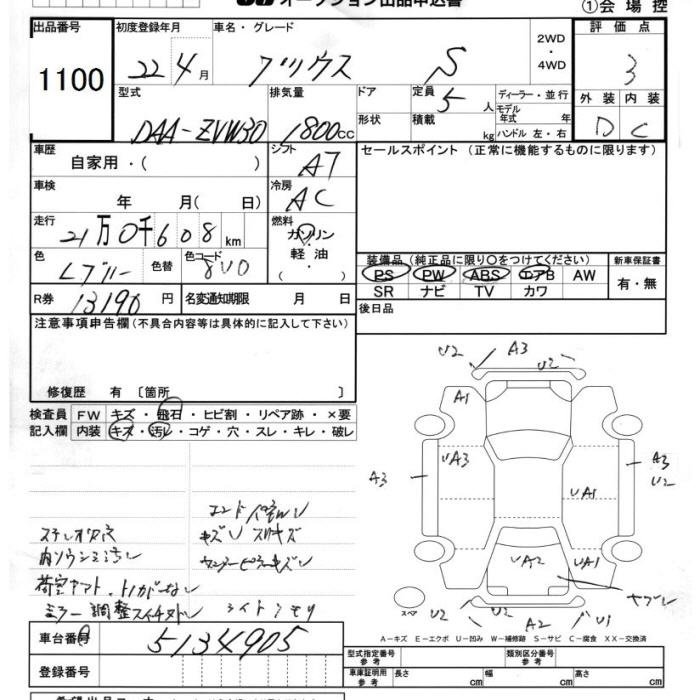 オークション出品申込書 ①会場控
出品番号 初度登録年月 車名・グレード 2WD ・ 4WD 評価点
1100 22 4月 プリウス S 3
型式 排気量 ドア 定員 5人 ディーラー・並行 外装 内装
DAA-ZVW30 1800cc 形状 積載 kg モデル年式 年 ハンドル 左・右 D C
車歴 自家用・( ) シフト AT セールスポイント (正常に機能するものに限ります)
車検 年 月( 日) 冷房 AC
走行 21万0千608km 燃料 ガソリン 軽油 ・
色 Lブルー 色替 色コード 8V0 装備品 (純正品に限り○をつけてください) 新車保証書
PS PW ABS エアB AW 有・無
R券 13190円 名変通知期限 月 日 SR ナビ TV カワ
注意事項申告欄(不具合内容等は具体的に記入して下さい) 後日品
修復歴 有 〔箇所 〕
検査員 FW キズ・飛石・ヒビ割・リペア跡・×要
記入欄 内装 キズ・汚レ・コゲ・穴・スレ・キレ・破レ
U2 A3 U2
A1
UA3
A3 A3
UA1 U2
UA2 UA1
ヤブレ
スペア U2 U2 A2 U1
キズU スリキズ
ミラー調整スイチ
ライトクモリ
A-キズ E-エクボ U-凹み W-補修跡 S-サビ C-腐食 XX-交換済
車台番号 5134905 型式指定番号 参考 類別区分番号 参考
登録番号 車庫証明用 参考 長さ cm 幅 cm 高さ cm